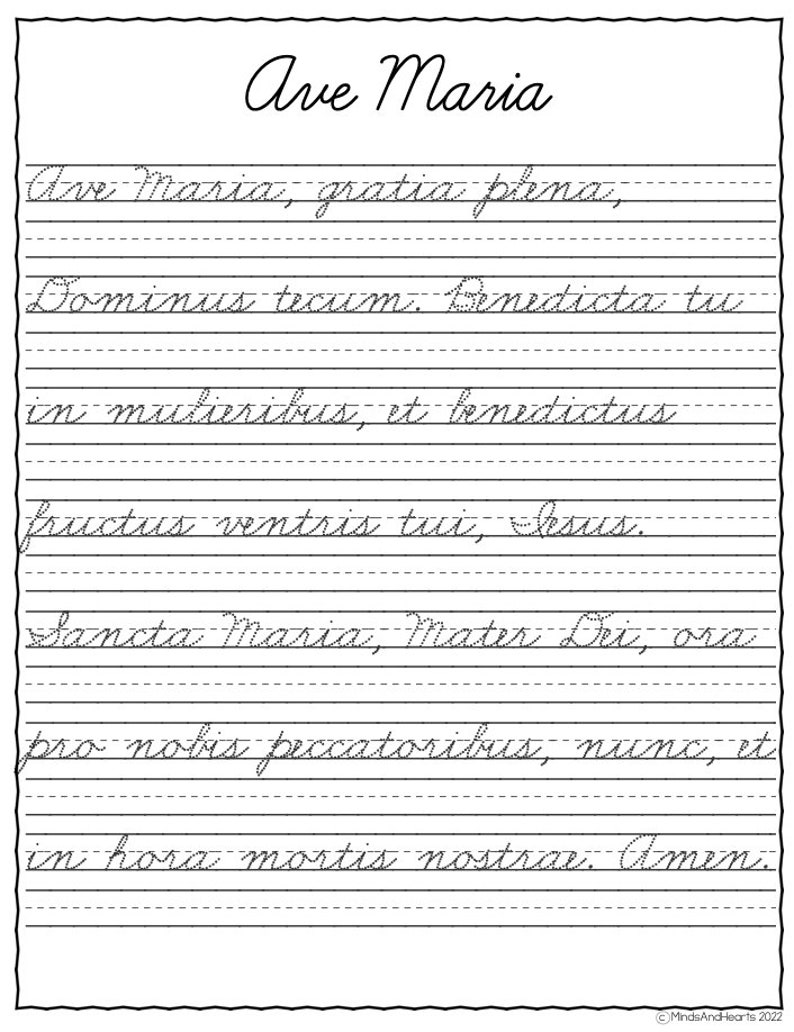 Ave Maria
Ave Maria, gratia plena,
Dominus tecum. Benedicta tu
in mulieribus, et benedictus
fructus ventris tui, Iesus.
Sancta Maria, Mater Dei, ora
pro nobis peccatoribus, nunc, et
in hora mortis nostrae. Amen.
©MindsAndHearts 2022